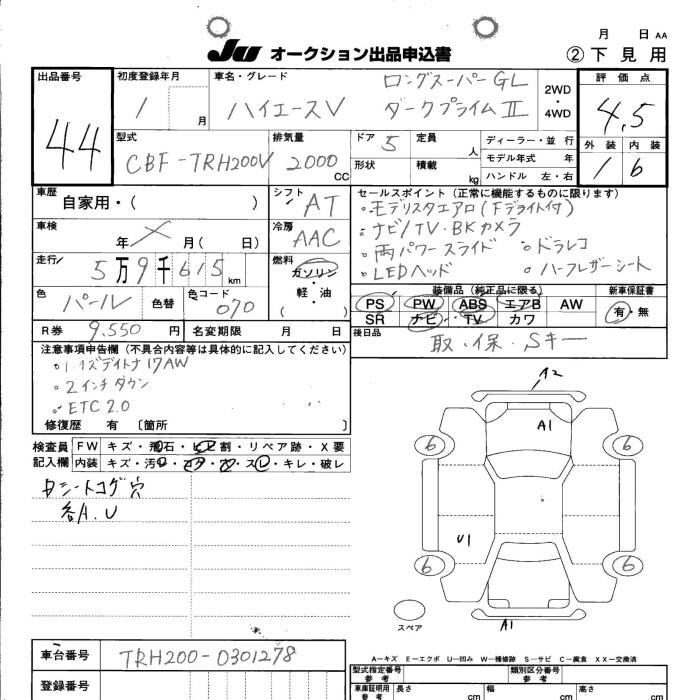 月 日 AA
JU オークション出品申込書 ② 下見用
出品番号 初度登録年月 車名・グレード 2WD・4WD 評価点
44 1 月 ハイエースV ロングスーパーGL ダークプライムII 4.5
型式 排気量 ドア 5 定員 人 ディーラー・並行 外装 内装
CBF-TRH200V 2000 CC 形状 積載 kg モデル年式 年 1 6
ハンドル 左・右
車歴 自家用・( ) シフト AT セールスポイント(正常に機能するものに限ります)
車検 年 月( 日) 冷房 AAC
。モデリスタエアロ(Fデライト付)
。ナビ/TV・BKカメラ
。両パワースライド 。ドラレコ
。LEDヘッド 。ハーフレザーシート
走行 5万9千615km 燃料 ガソリン・軽・油 ( )
色 パール 色替 色コード 070
装備品(純正品に限る) 新車保証書
PS PW ABS エアB AW 有・無
SR ナビ TV カワ
R券 9.550円 名変期限 月 日 後日品 取・保・Sキー
注意事項申告欄(不具合内容等は具体的に記入してください)
デイトナ17AW
。2インチダウン
。ETC2.0
修復歴 有 〔箇所 〕
検査員記入欄 FW キズ・飛石・ヒビ割・リペア跡・X要
内装 キズ・汚レ・コゲ・穴・スレ・キレ・破レ
シートコゲ穴
各A.U
A2
A1
6 6
U1
6 6
スペア A1
A-キズ E-エクボ U-凹み W-補修跡 S-サビ C-腐食 XX-交換済
車台番号 TRH200-0301278
登録番号
型式指定番号 参考 類別区分番号 参考
車庫証明用 参考 長さ cm 幅 cm 高さ cm